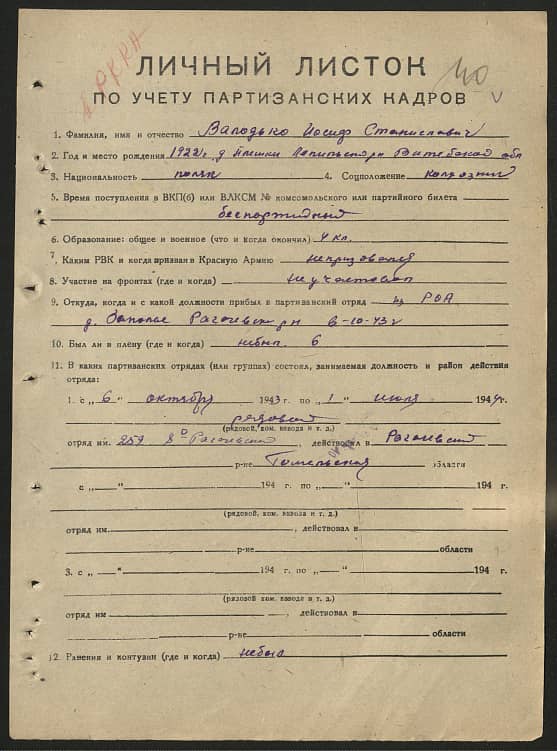 в РККА
40
ЛИЧНЫЙ ЛИСТОК
ПО УЧЕТУ ПАРТИЗАНСКИХ КАДРОВ
1. Фамилия, имя и отчество Валодько Иосиф Станиславич
2. Год и место рождения 1922 г. д Плешки р-н Витебской обл
3. Национальность поляк 4. Соцположение колхозник
5. Время поступления в ВКП(б) или ВЛКСМ № комсомольского или партийного билета
беспартийный
6. Образование: общее и военное (что и когда окончил) 4 кл.
7. Каким РВК и когда призван в Красную Армию непризовался
8. Участие на фронтах (где и когда) неучаствовал
9. Откуда, когда и с какой должности прибыл в партизанский отряд из РОА
д. Заполье р-н 6-10-43 г
10. Был ли в плену (где и когда) небыл
11. В каких партизанских отрядах (или группах) состоял, занимаемая должность и район действия
отряда:
1. с „ 6 “ октября 1943 г. по „ 1 “ июля 1944 г.
рядовой
(рядовой, ком. взвода и т. д.)
отряд им. 257 , действовал в
р-не Гомельская области
с „ “ 194 г. по „ “ 194 г.
(рядовой, ком. взвода и т. д.)
отряд им. , действовал в
р-не области
3. с „ “ 194 г. по „ “ 194 г.
(рядовой ком. взвода и т. д.)
отряд им , действовал в
р-не области
12. Ранения и контузии (где и когда) небыл